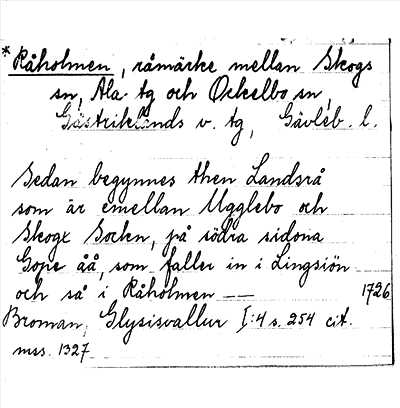 * Råholmen, råmärke mellan Skogs
sn, Ala tg och Ockelbo sn,
Gästriklands v. tg, Gävleb. l.
Sedan begynnes then Landsrå
som är emellan Ugglebo och
Skogz Sockn, på södra sidona
Gope åå, som faller in i Lingsiön
och så i Råholmen —— 1726
Broman, Glysisvallur I:4 s. 254 cit.
mss. 1327